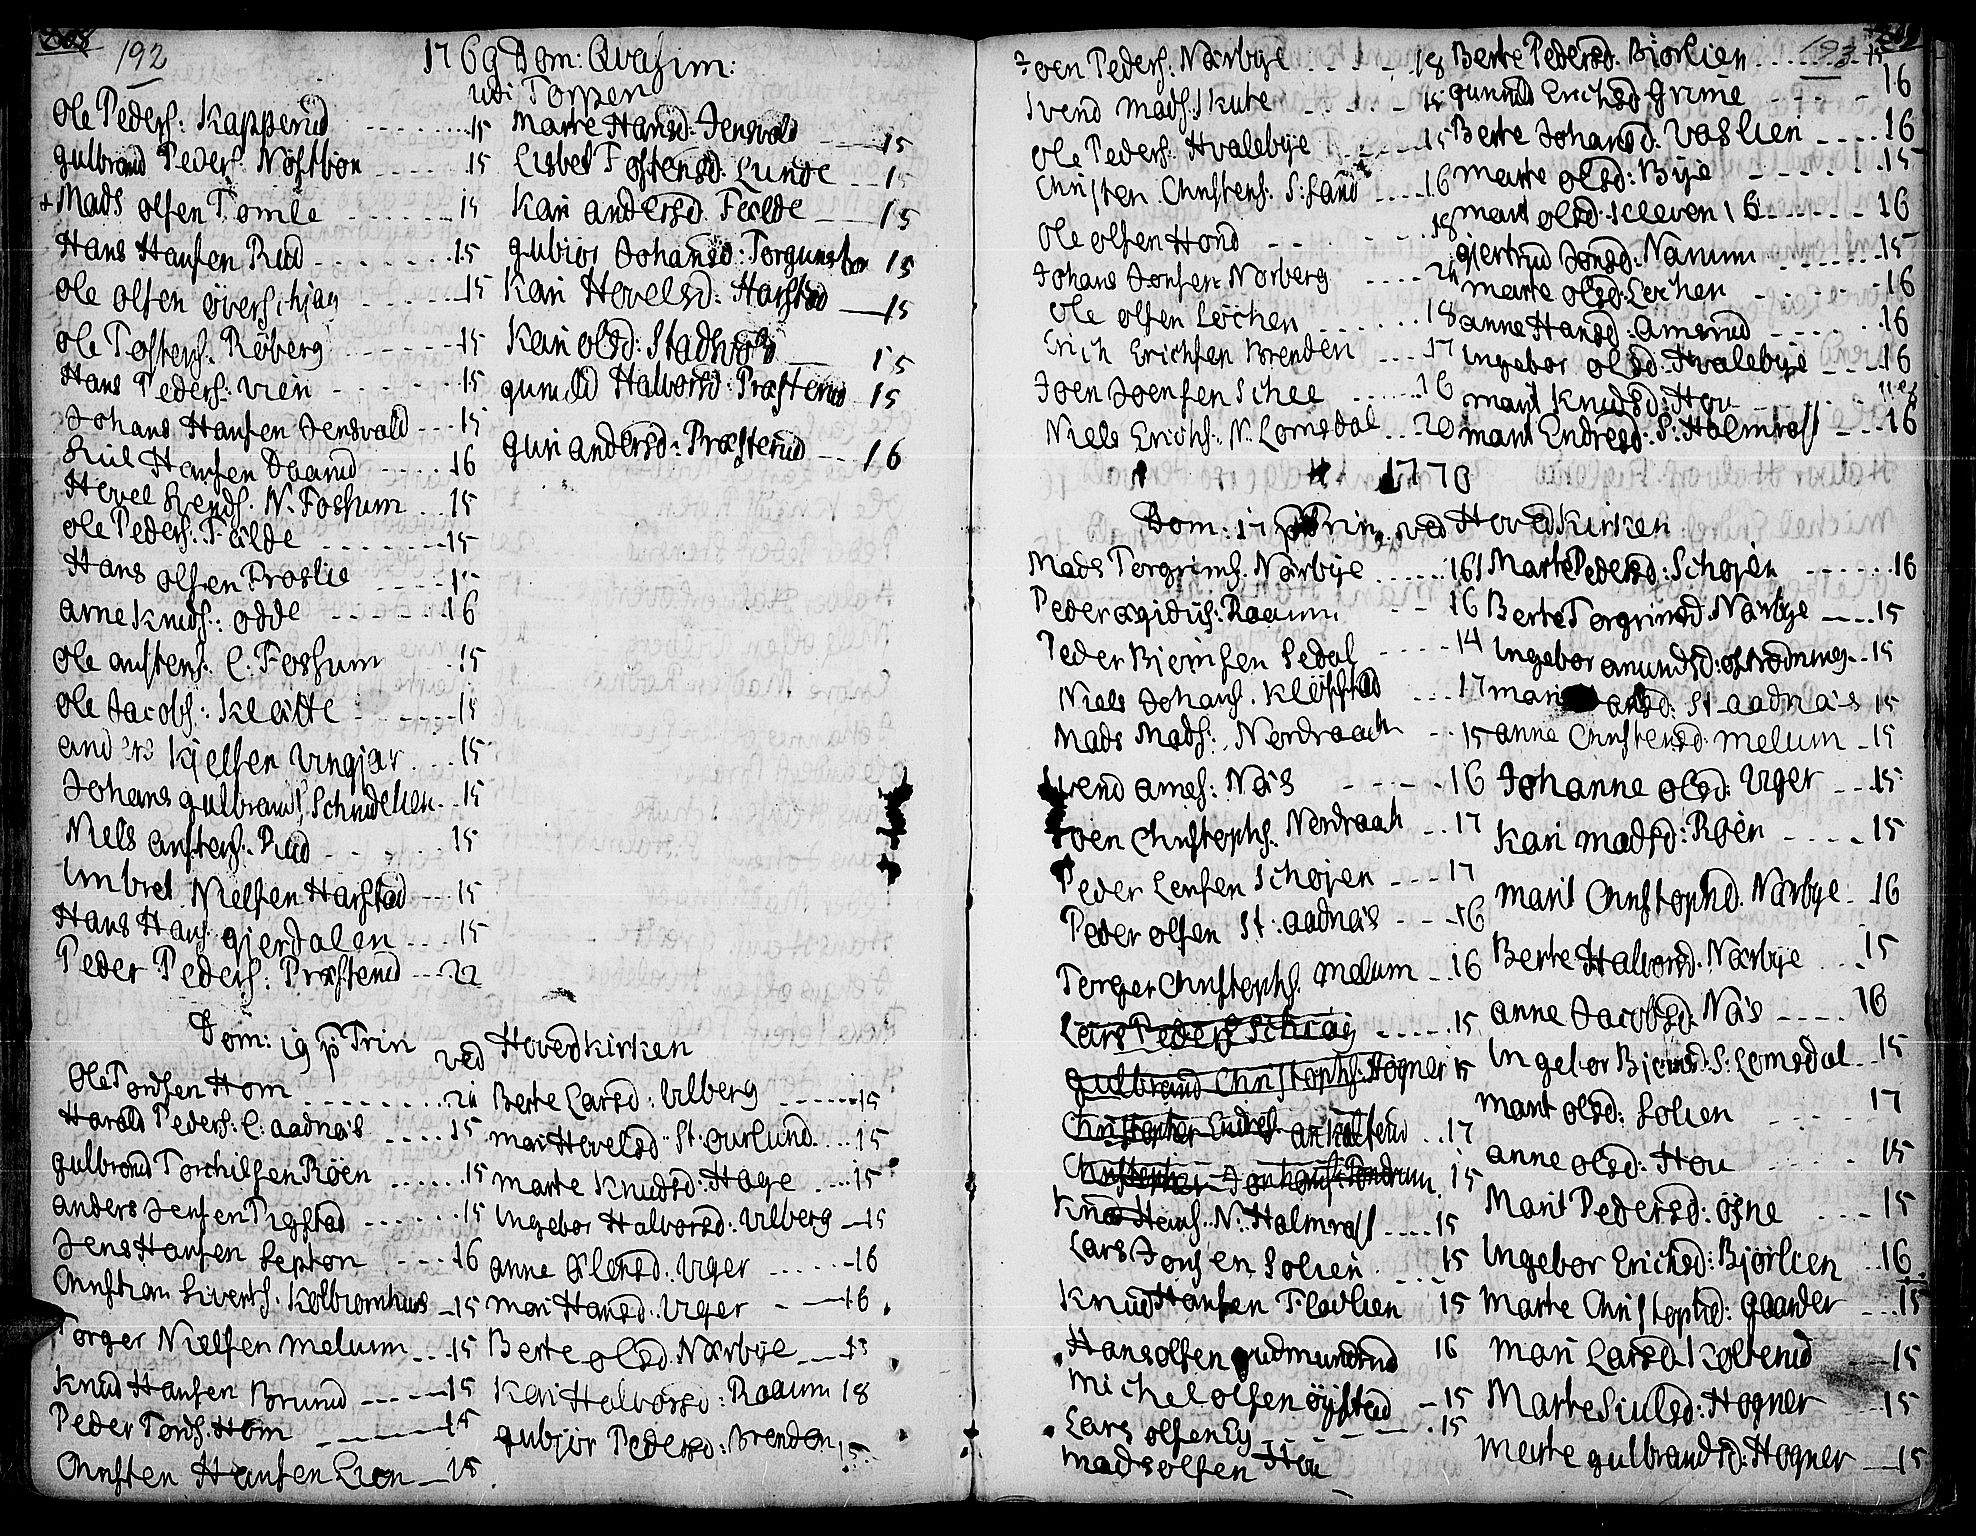 192
1769 Dom: Quasim:
udi Torpen
Ole Peders: Kapperud - - - - 15
gulbrand Peders. Nöstbön - - - - 15
+ Mads olsen Tomle - - - - 15
Hans Hansen Rud - - - - 15
Ole olsen överschjag - - - - 15
Ole Tostens. Röberg - - - - 15
Hans Peders: Vien - - - - 15
Johans Hansen Jensvald - - - 15
Siul Hansen Daarud - - - - 16
Hovel Svends. N. Fossum - - 15
Ole Peders. Fælde - - - - 15
Hans olsen Braslie - - - - 15
arne Knuds: odde - - - - 16
Ole anstens. C. Fossum - - 15
Ole Jacobs: Klætte - - - - 15
anders Kjelsen Ungjar - - - 15
Johans gulbrands. Schrudelien - - 15
Niels anstens. Rud - - - 15
Imbret Nielsen Harstad - - - 15
Hans Hans. gjerdalen - - - 15
Peder Peders: Præsterud - - - 22
Marte Hansd. Jensvald - - 15
Lisbet Tostensd. Lunde - - 15
Kari andersd. Fælde - - 15
gubjør Johansd: 15
Kari Hovelsd: Harstad - - 15
Kari olsd: Stadsvold - - 15
gunild Halvorsd: Præsterud 15
guri andersd: Præsterud - - 16
Dom: 19 p Trin ved Hovedkirken
Ole Tordsen Hom - - - - 24
Harald Peders. C: aadnæs - - - - 15
gulbrand Torchilsen Röen - - - - 15
anders Jensen Pigstad - - - - 15
Jens Hansen Lepton - - - - 16
Christian Siverts. Kolbiornhuus - 15
Torger Nielsen Melum - - - 15
Knud Hansen Brurud - - - - 15
Peder Tords. Hom - - - - 15
Christen Hansen Lien - 15
Berte Larsd: Ulberg - - - - 15
mari Hovelsd: St. ourlund - - - 15
marte Knudsd: Hage - - - 15
Ingebor Halvorsd: Ulberg - 15
anne Olensd. Uger - - - - 16
mari Hansd. Uger - - - 16
Berte olsd. Nærbye - - - 15
Kari Halvorsd: Raaum 18
gubjör Pedersd: Brenden 15
193
Joen Peders: Nærbye - - - - 18
Svend Mads. Skute - - - - 15
Ole Peders. Hvalebye - - - 15
Christen Christens: S: Land - - - 16
Ole olsen Hond - - - - 18
Johans Jonsen: Norberg - - - 24
Ole olsen Löchen - - - - 18
Erich Erichsen Brenden - - - 17
Joen Joensen Schee - - - - 16
Niels Erichs: N. Lomsdal - - 20
Berte Pedersd. Biörlien - - - - 15
gunnild Erichsd. Grime - - - - 16
Berte Johansd. Vaslien - - - - 16
marte olsd: Bye - - - - 15
marit olsd. Kleven 16 - - - - 16
gjertrud Jonsd: Narum - - - - 15
marte olsd: Lochen - - - - 16
anne Hansd: amsrud - - - - 16
Ingebor olsd: Hvalebye - - - 16
marit Knudsd: Hou - - - -
marit Endresd: S: Halmrast - - 16
1770
Dom: 17 p Trin, ved Hovedkirken
Mads Torgrims. Nærbye - - - - 16
Peder ægidii: Raaum - - 16
Peder Bjørnsen Sedal - - - - 14
Niels Johans. Klöfstad - - - 17
Mads Mads: Nordraach - - 15
Svend arnes: Næs - - - - 16
Joen Christophs. Nordraach - - 17
Peder Lensen Schøjen - - - 17
Peder olsen St: aadnæs - - 16
Torger Christophs. Melum - 16
Lars Peders Schiag - - - - 15
gulbrand Christophs: Hogner 15
Christopher Endres. 17
Christopher 15
Knud Hans: N: Halmrast - - - 15
Lars Jonsen Solien - - - 15
Knud Hansen Fladlien 15
Hans olsen gudmundrud 16
Michel olsen öystad - 15
Lars olsen Ey - - - - 15
Mads olsen Hou
Marte Pedersd: Schøjen - - - - 16
Berte Torgrimsd. Nærbye - - - 15
Ingebor amundsd: - - 15
mari St. aadnæs 15
anne Christensd. Melum - 15
Johanne olsd: Uger - - 15
Kari madsd: Röen - - - - 15
Marit Christophd. Nærbye - 16
Berte Halvorsd. Nærbye - - 15
anne Jacobsd. Næs - - - - 16
Ingebor Bjørnsd. S: Lomsdal - - 15
Marit olsd: Solien - - - 17
anne olsd: Hou - - - - 15
Marit Pedersd: ösne - - - 15
Ingebor Erichsd: Bjørlien - - 16
Marte Christophd: gaarder - - 15
Mari Larsd: Kolterud - - 15
Marte Siulsd: Hogner - - 15
Marte gulbrandsd: Hogner - 15